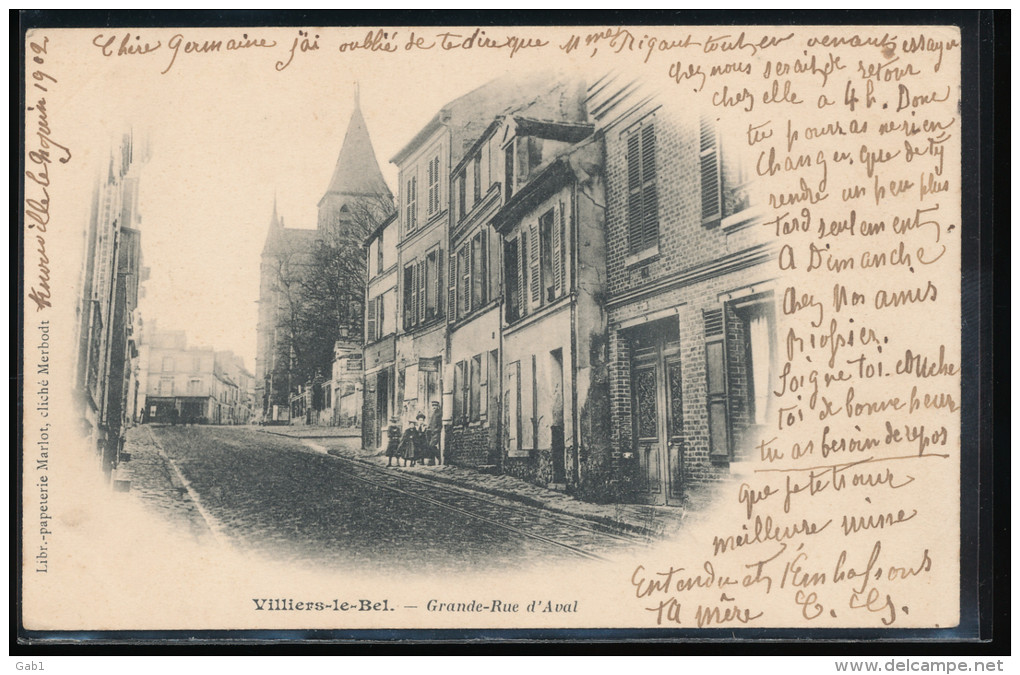 Chère Germaine j'ai oublié de te dire que Mme Rigaut tout en venant essayer
chez nous serait de retour
chez elle à 4h. Donc
tu pourras ne rien
changer. Que de t'y
rendre un peu plus
tard seulement.
A Dimanche
chez nos amis
Soigne toi. couche
toi de bonne heure
tu as besoin de repos
Que je te trouve
meilleure mine
Entendu et t'Embrassons
ta mère C. G.
le 20 juin 1902
Libr.-papeterie Marlot, cliché Merbodt
Villiers-le-Bel. — Grande-Rue d'Aval
Gab1
www.delcampe.net